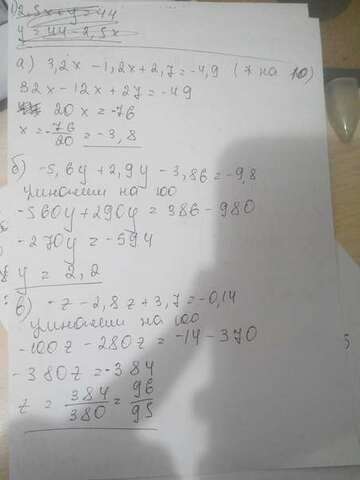 2,5x+y=44
y=44-2,5x
а) 3,2x - 1,2x + 2,7 = -4,9 (* на 10)
32x - 12x + 27 = -49
20x = -76
x = -76/20 = -3,8
б) -5,6y + 2,9y - 3,86 = -9,8
умножим на 100
-560y + 290y = 386 - 980
-270y = -594
y = 2,2
в) -z - 2,8z + 3,7 = -0,14
умножим на 100
-100z - 280z = -14 - 370
-380z = -384
z = 384/380 = 96/95